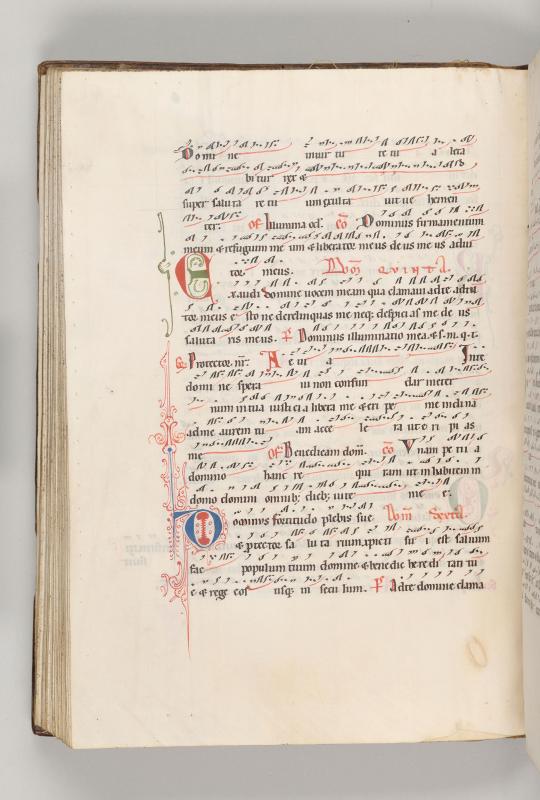 Domi ne intui tu re tu a leta
bi tur rex &
super saluta re tu um exulta uit ue hemen
ter. Of Illumina ocl. Co Dominus firmamentum
meum & refugium me um & liberator meus deus me us adiu
tor meus. Dom Quinta.
Exaudi domine uocem meam qua clamaui ad te adiu
tor meus e sto ne derelinquas me neq; despicias me deus
saluta ris meus. Ps Dominus illuminatio mea & s. m. q. t.
Gr Protector nr. Ae u ia In te
domi ne spera ui non confun dar in eter
num in tua iusticia libera me & eri pe me inclina
ad me aurem tu am acce le ra ut e ri pi as
me Of Benedicam dom. Co Unam pe ti a
domino hanc re qui ram ut in habitem in
domo domini omnib; dieb; uite me e.
Dominus fortitudo plebis sue Dom Sexta.
& protector sa lu ta rium xpicti su i est saluum
fac populum tuum domine & benedic heredi tati tu
e & rege eos usq; in secu lum. Ps Ad te domine clama